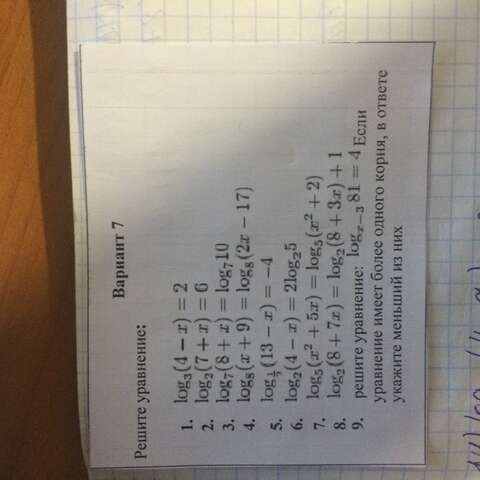 Вариант 7
Решите уравнение:
1. log₃(4 − x) = 2
2. log₂(7 + x) = 6
3. log₇(8 + x) = log₇10
4. log₈(x + 9) = log₈(2x − 17)
5. (13 − x) = −4
6. log₂(4 − x) = 2log₂5
7. log₅(x² + 5x) = log₅(x² + 2)
8. log₂(8 + 7x) = log₂(8 + 3x) + 1
9. решите уравнение: logₓ₋₃ 81 = 4 Если
уравнение имеет более одного корня, в ответе
укажите меньший из них